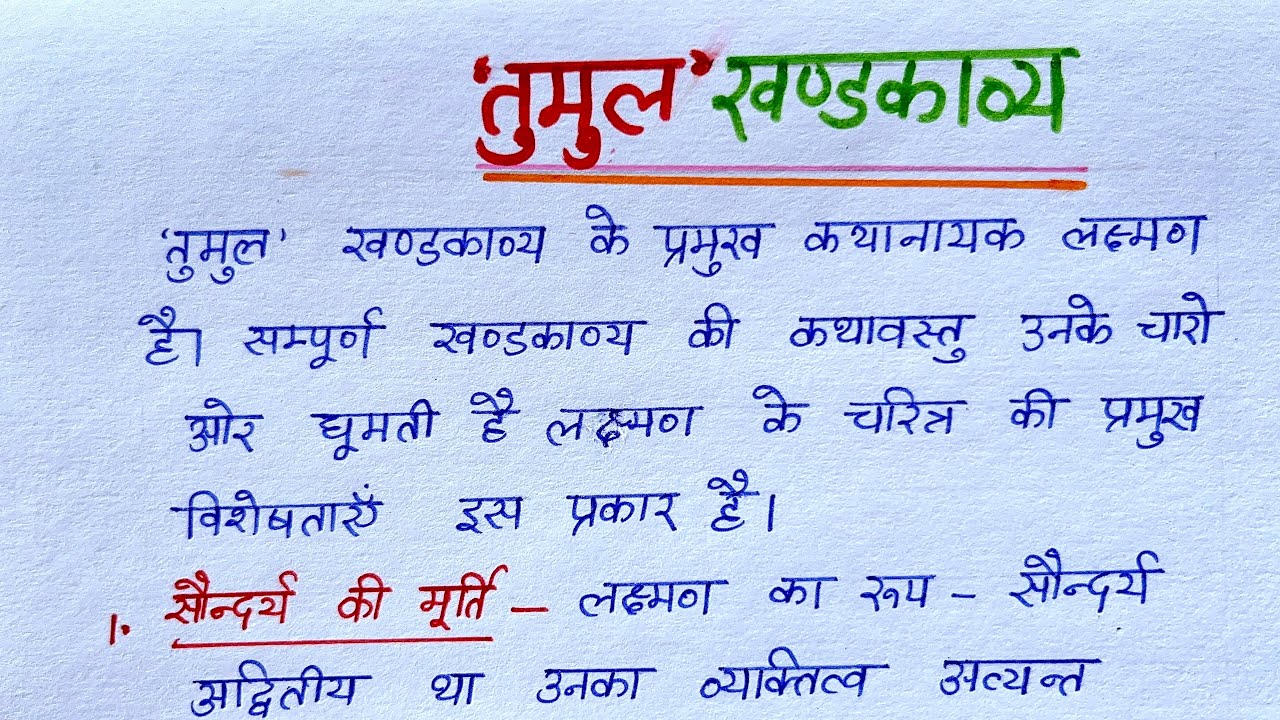 'तुमुल' खण्डकाव्य
'तुमुल' खण्डकाव्य के प्रमुख कथानायक लक्ष्मण
है। सम्पूर्ण खण्डकाव्य की कथावस्तु उनके चारो
ओर घूमती है लक्ष्मण के चरित्र की प्रमुख
विशेषताएँ इस प्रकार है।
1. सौन्दर्य की मूर्ति – लक्ष्मण का रूप – सौन्दर्य
अद्वितीय था उनका व्यक्तित्व अत्यन्त